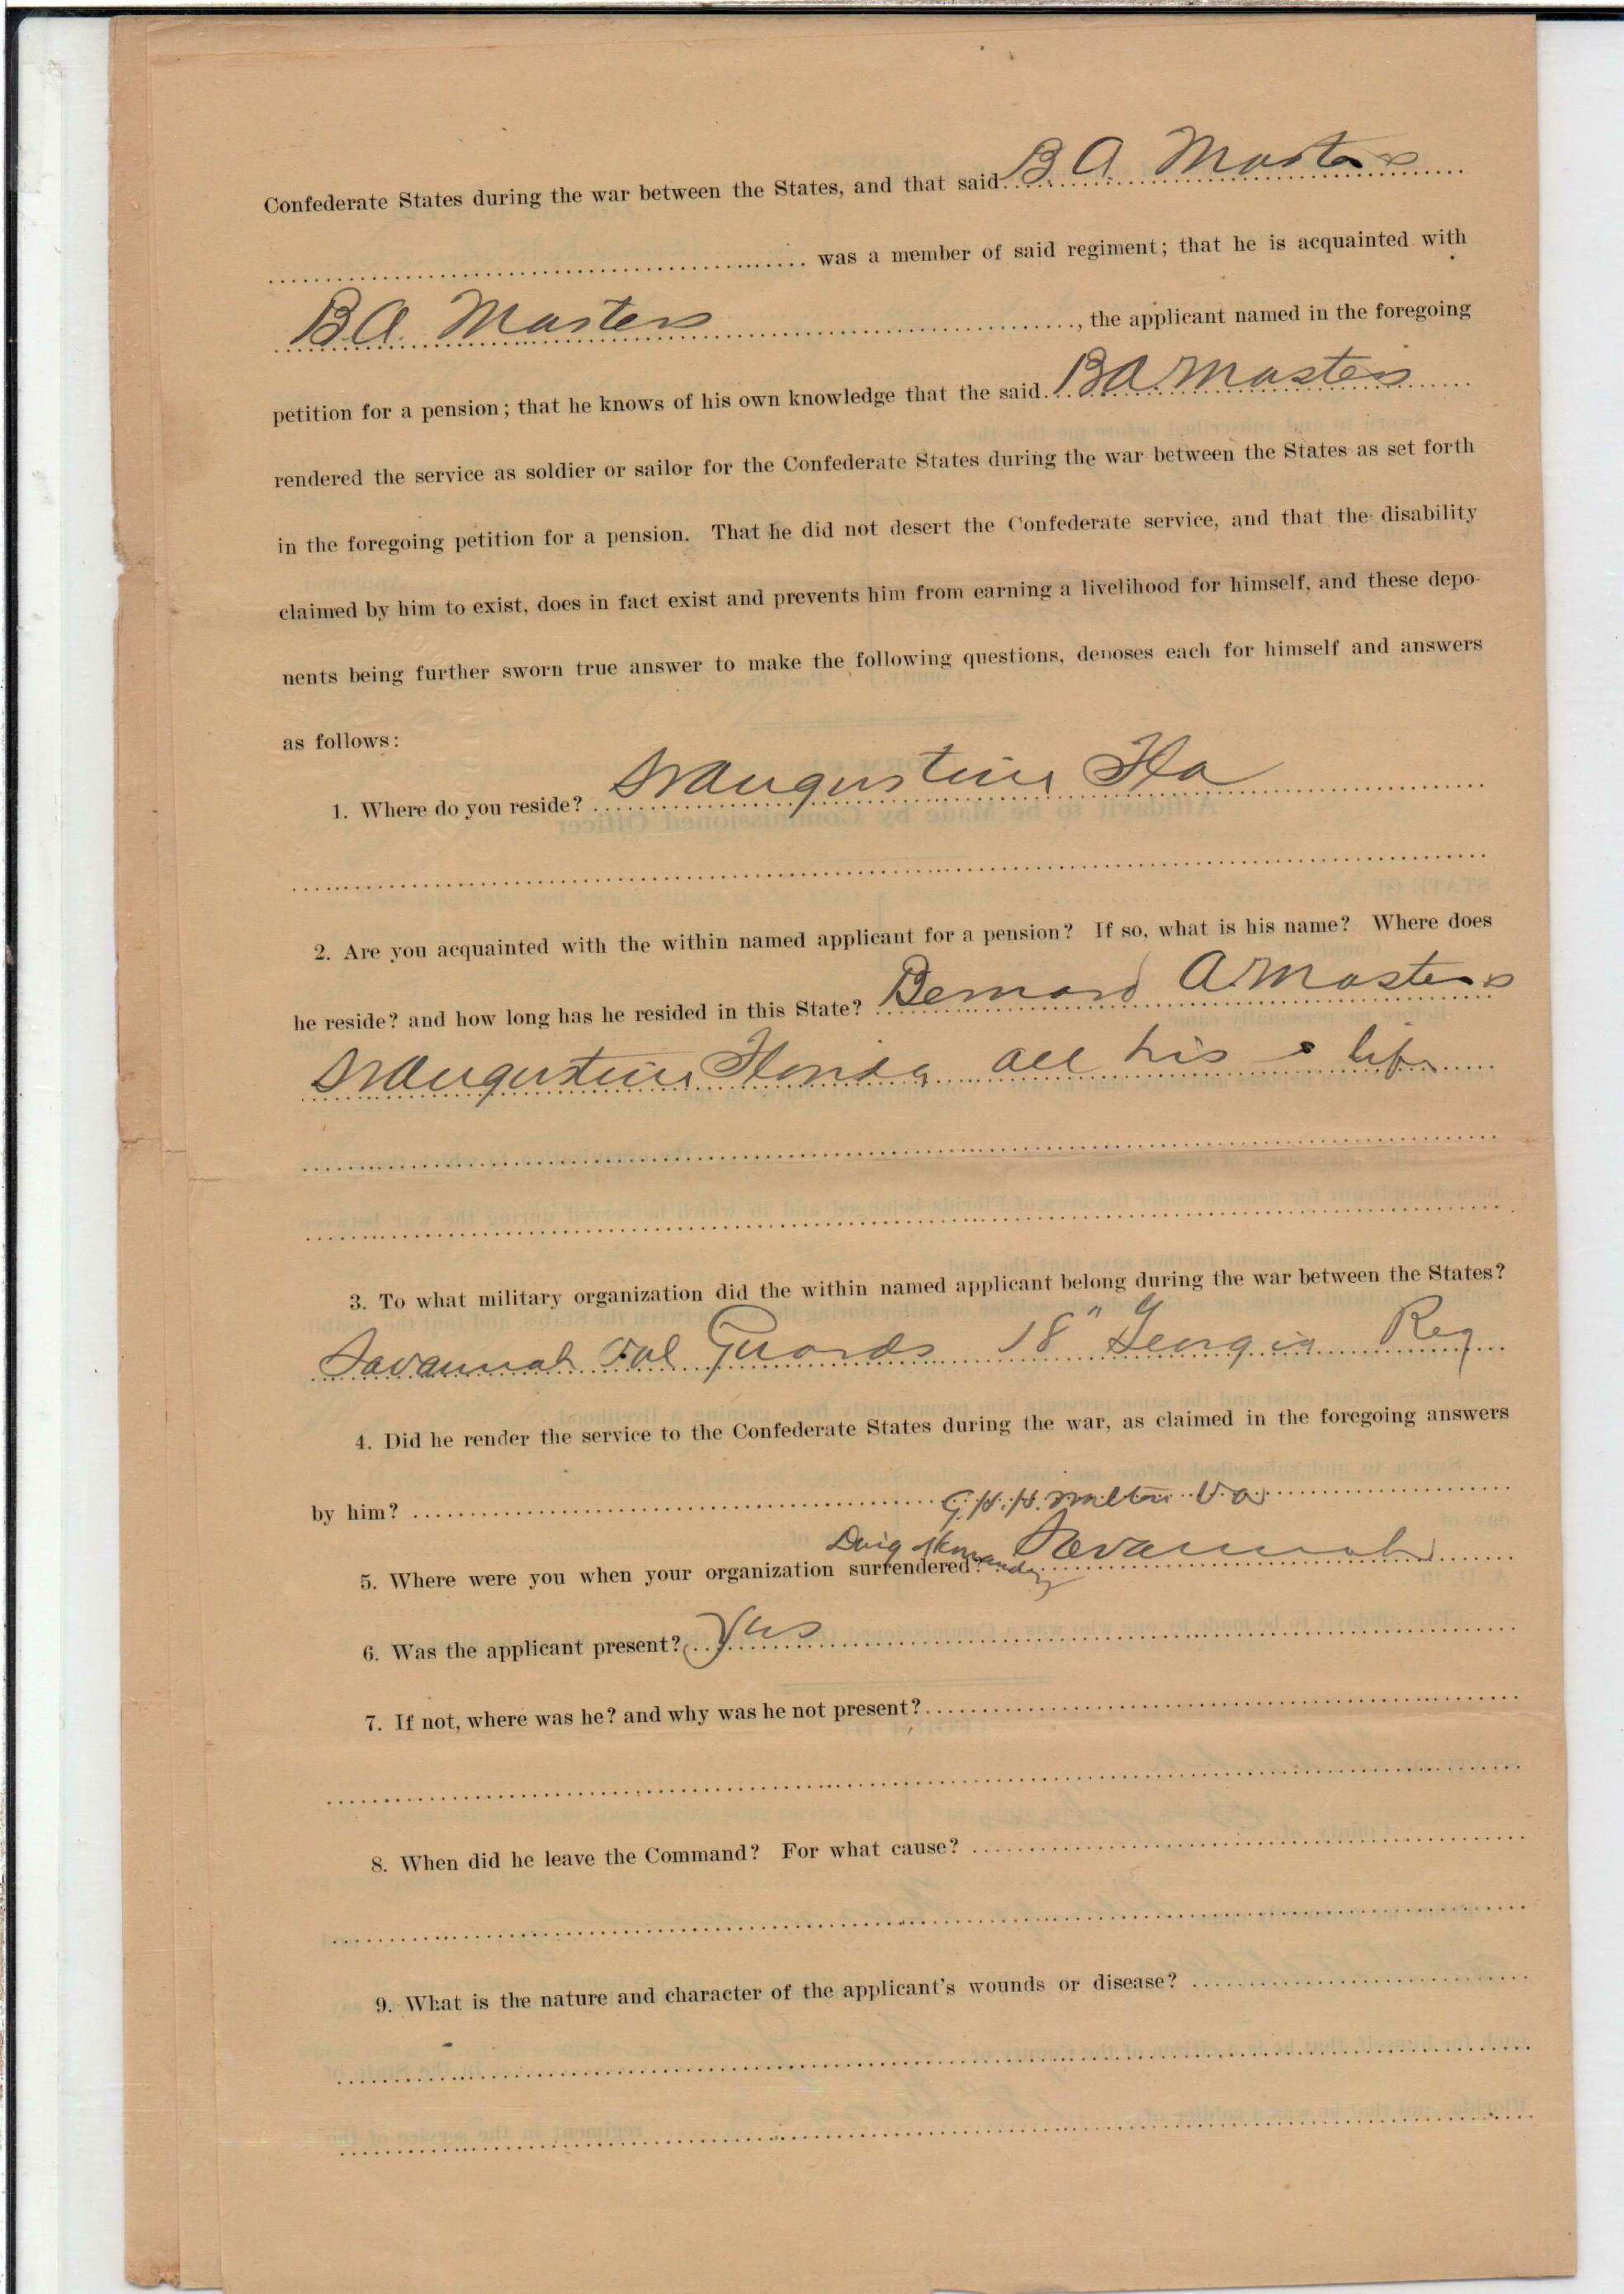 Confederate States during the war between the States, and that said B A. Masters
was a member of said regiment; that he is acquainted with
B A. Masters, the applicant named in the foregoing
petition for a pension; that he knows of his own knowledge that the said B A. Masters
rendered the service as soldier or sailor for the Confederate States during the war between the States as set forth
in the foregoing petition for a pension. That he did not desert the Confederate service, and that the disability
claimed by him to exist, does in fact exist and prevents him from earning a livelihood for himself, and these depo-
nents being further sworn true answer to make the following questions, deposes each for himself and answers
as follows:
1. Where do you reside? St Augustine Fla
2. Are you acquainted with the within named applicant for a pension? If so, what is his name? Where does
he reside? and how long has he resided in this State? Bernard A Masters
St Augustine Florida all his life
3. To what military organization did the within named applicant belong during the war between the States?
Savannah Vol Guards 18" Georgia Reg
4. Did he render the service to the Confederate States during the war, as claimed in the foregoing answers
by him?
5. Where were you when your organization surrendered? Savannah
6. Was the applicant present? Yes
7. If not, where was he? and why was he not present?
8. When did he leave the Command? For what cause?
9. What is the nature and character of the applicant's wounds or disease?